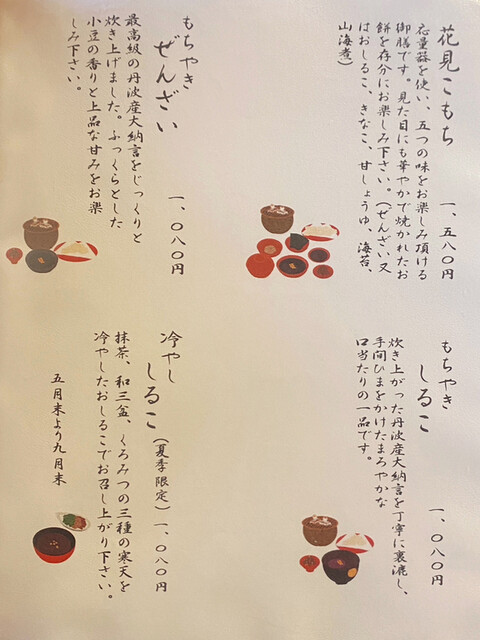 花見こもち
一、五八〇円
応量器を使い、五つの味をお楽しみ頂ける
御膳です。見た目にも華やかで焼かれたお
餅を存分にお楽しみ下さい。（ぜんざい又
はおしるこ、きなこ、甘しょうゆ、海苔、
山海煮）
もちやき
ぜんざい
一、〇八〇円
最高級の丹波産大納言をじっくりと
炊き上げました。ふっくらとした
小豆の香りと上品な甘みをお楽
しみ下さい。
もちやき
しるこ
一、〇八〇円
炊き上がった丹波産大納言を丁寧に裏漉し、
手間ひまをかけたまろやかな
口当たりの一品です。
冷やし
しるこ
（夏季限定）一、〇八〇円
抹茶、和三盆、くろみつの三種の寒天を
冷やしたおしるこでお召し上がり下さい。
五月末より九月末